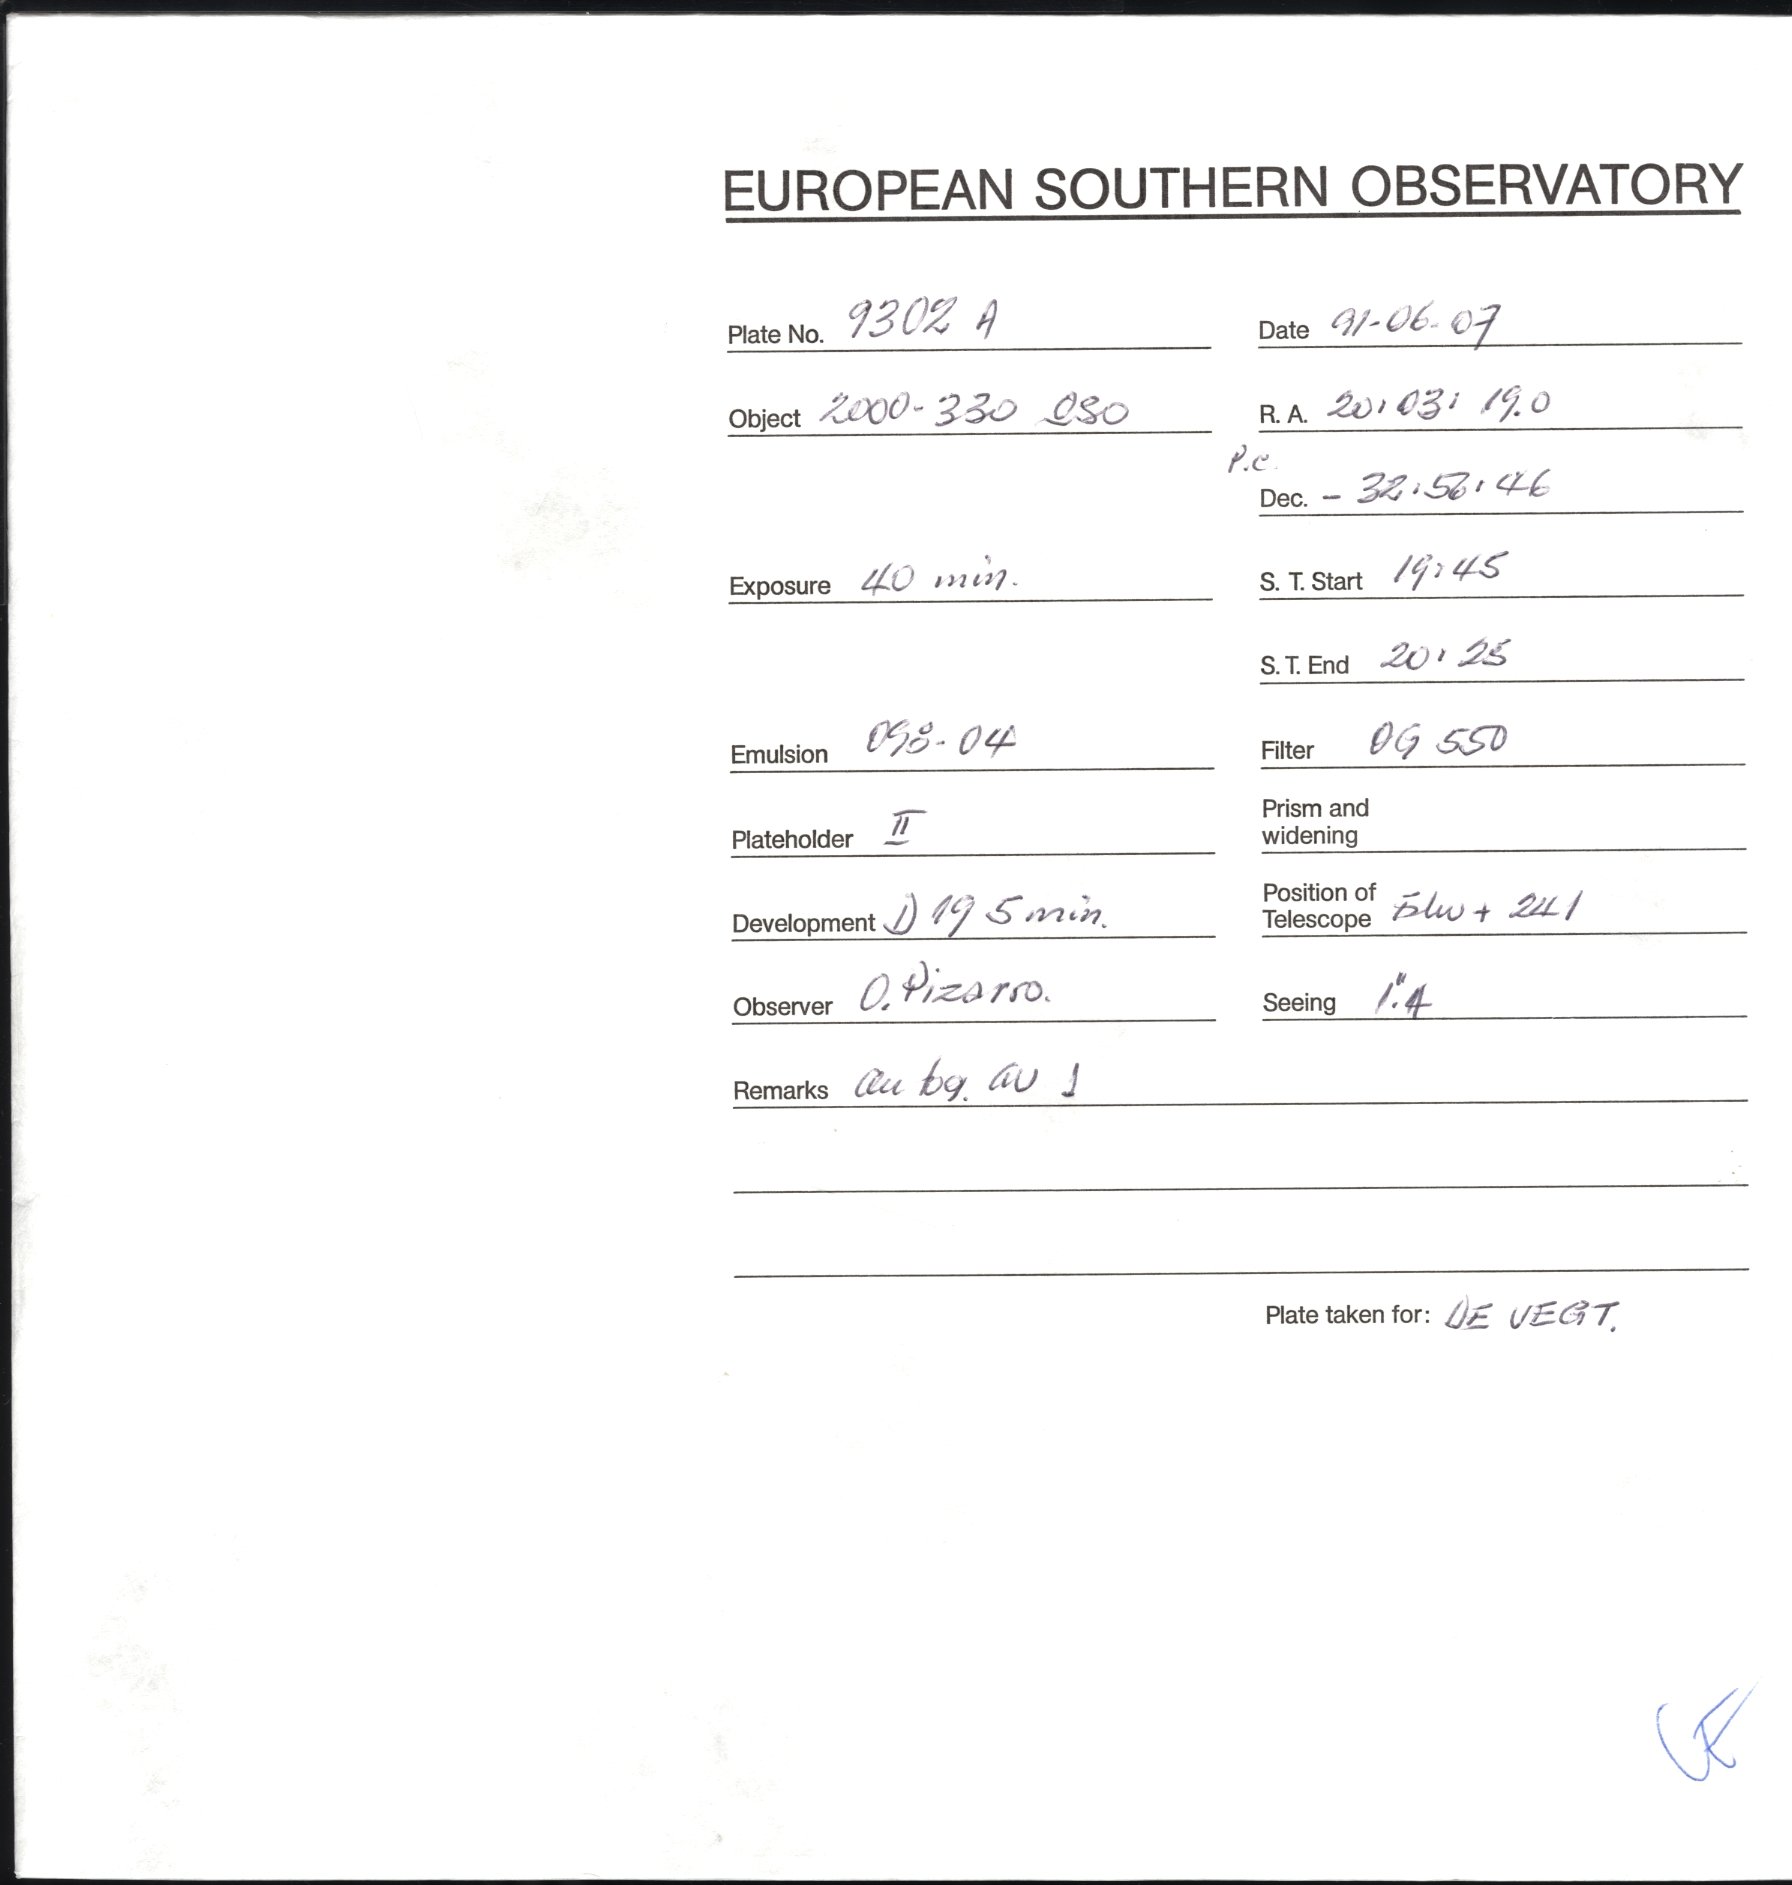 EUROPEAN SOUTHERN OBSERVATORY
Plate No. 9302 A Date 91-06-07
Object 2000-330 QSO R. A. 20:03:19.0
P.c.
Dec. - 32:56:46
Exposure 40 min. S. T. Start 19:45
S. T. End 20:25
Emulsion 098-04 Filter OG 550
Plateholder II Prism and
widening
Development D 19 5 min. Position of
Telescope + 241
Observer O. Pizarro. Seeing 1".4
Remarks
Plate taken for: DE VEGT.